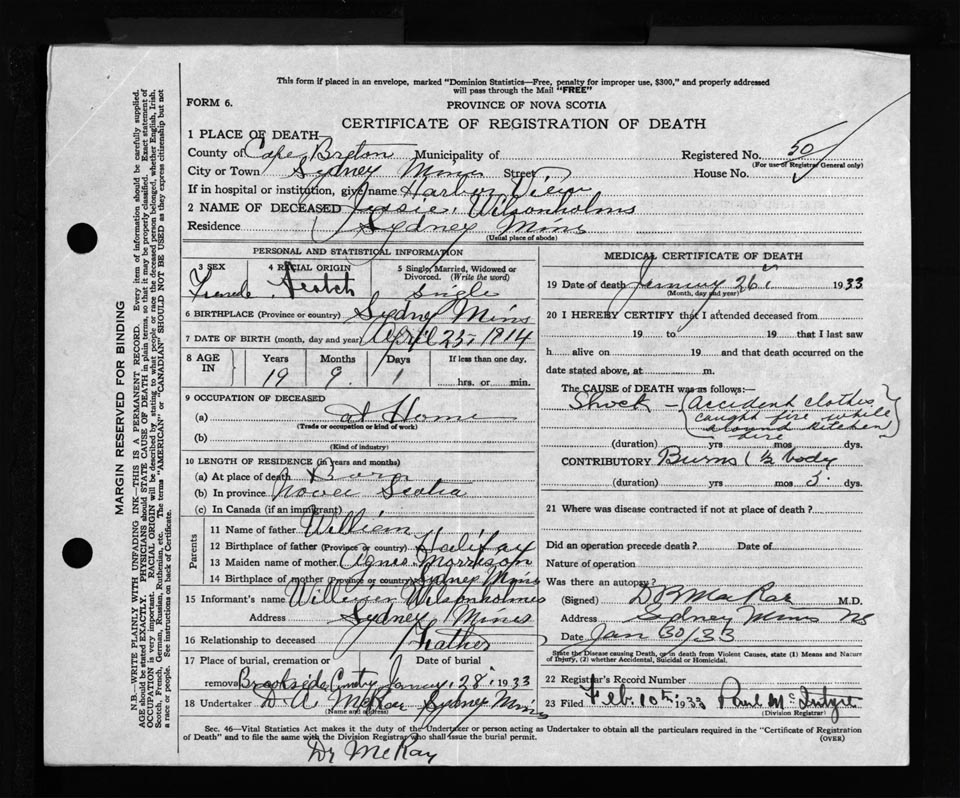 This form if placed in an envelope, marked "Dominion Statistics—Free, penalty for improper use, $300," and properly addressed
will pass through the Mail "FREE"
FORM 6.
PROVINCE OF NOVA SCOTIA
CERTIFICATE OF REGISTRATION OF DEATH
1 PLACE OF DEATH
County of Cape Breton Municipality of Registered No. 50
(For use of Registrar General only)
City or Town Sydney Mines Street House No.
If in hospital or institution, give name Harbor View
2 NAME OF DECEASED Jessie Wilsonholms
Residence Sydney Mines
(Usual place of abode)
PERSONAL AND STATISTICAL INFORMATION
3 SEX 4 RACIAL ORIGIN 5 Single, Married, Widowed or
Divorced. (Write the word)
Female Scotch Single
6 BIRTHPLACE (Province or country) Sydney Mines
7 DATE OF BIRTH (month, day and year) April 25, 1914
8 AGE IN Years Months Days If less than one day,
19 9 1 hrs. or min.
9 OCCUPATION OF DECEASED
(a) at Home
(Trade or occupation or kind of work)
(b)
(Kind of industry)
10 LENGTH OF RESIDENCE (in years and months)
(a) At place of death Born
(b) In province Nova Scotia
(c) In Canada (if an immigrant)
Parents
11 Name of father William
12 Birthplace of father (Province or country) Halifax
13 Maiden name of mother Agnes Morrison
14 Birthplace of mother (Province or country) Sydney Mines
15 Informant's name William Wilsonholmes
Address Sydney Mines
16 Relationship to deceased Father
17 Place of burial, cremation or Date of burial
removal Brookside Cemetry January 28, 1933
18 Undertaker D. A. McRae Sydney Mines
(Name and address)
MEDICAL CERTIFICATE OF DEATH
19 Date of death January 26 1933
(Month, day and year)
20 I HEREBY CERTIFY that I attended deceased from
19 to 19 that I last saw
h alive on 19 and that death occurred on the
date stated above, at m.
The CAUSE of DEATH was as follows:—
Shock - (Accident clothes
caught fire while
around kitchen
fire)
(duration) yrs mos dys.
CONTRIBUTORY Burns (½ body
(duration) yrs mos 5. dys.
21 Where was disease contracted if not at place of death?
Did an operation precede death? Date of
Nature of operation
Was there an autopsy?
(Signed) M.D.
Address Sydney Mines NS
Date Jan 30/33
State the Disease causing Death, or in death from Violent Causes, state (1) Means and Nature
of Injury, (2) whether Accidental, Suicidal or Homicidal.
22 Registrar's Record Number
23 Filed Feb. 10th 1933 Paul McIntyre
(Division Registrar)
Sec. 46—Vital Statistics Act makes it the duty of the Undertaker or person acting as Undertaker to obtain all the particulars required in the "Certificate of Registration
of Death" and to file the same with the Division Registrar who shall issue the burial permit. (OVER)
Dr McKay
MARGIN RESERVED FOR BINDING
N.B.—WRITE PLAINLY WITH UNFADING INK—THIS IS A PERMANENT RECORD. Every item of information should be carefully supplied.
AGE should be stated EXACTLY. PHYSICIANS should STATE CAUSE OF DEATH in plain terms, so that it may be properly classified. Exact statement of
OCCUPATION is very important. RACIAL ORIGIN will be described by stating to what people or race the deceased person belonged, whether English, Irish,
Scotch, French, German, Russian, Ruthenian, etc. The terms "AMERICAN" or "CANADIAN" SHOULD NOT BE USED as they express citizenship but not
a race or people. See instructions on back of Certificate.